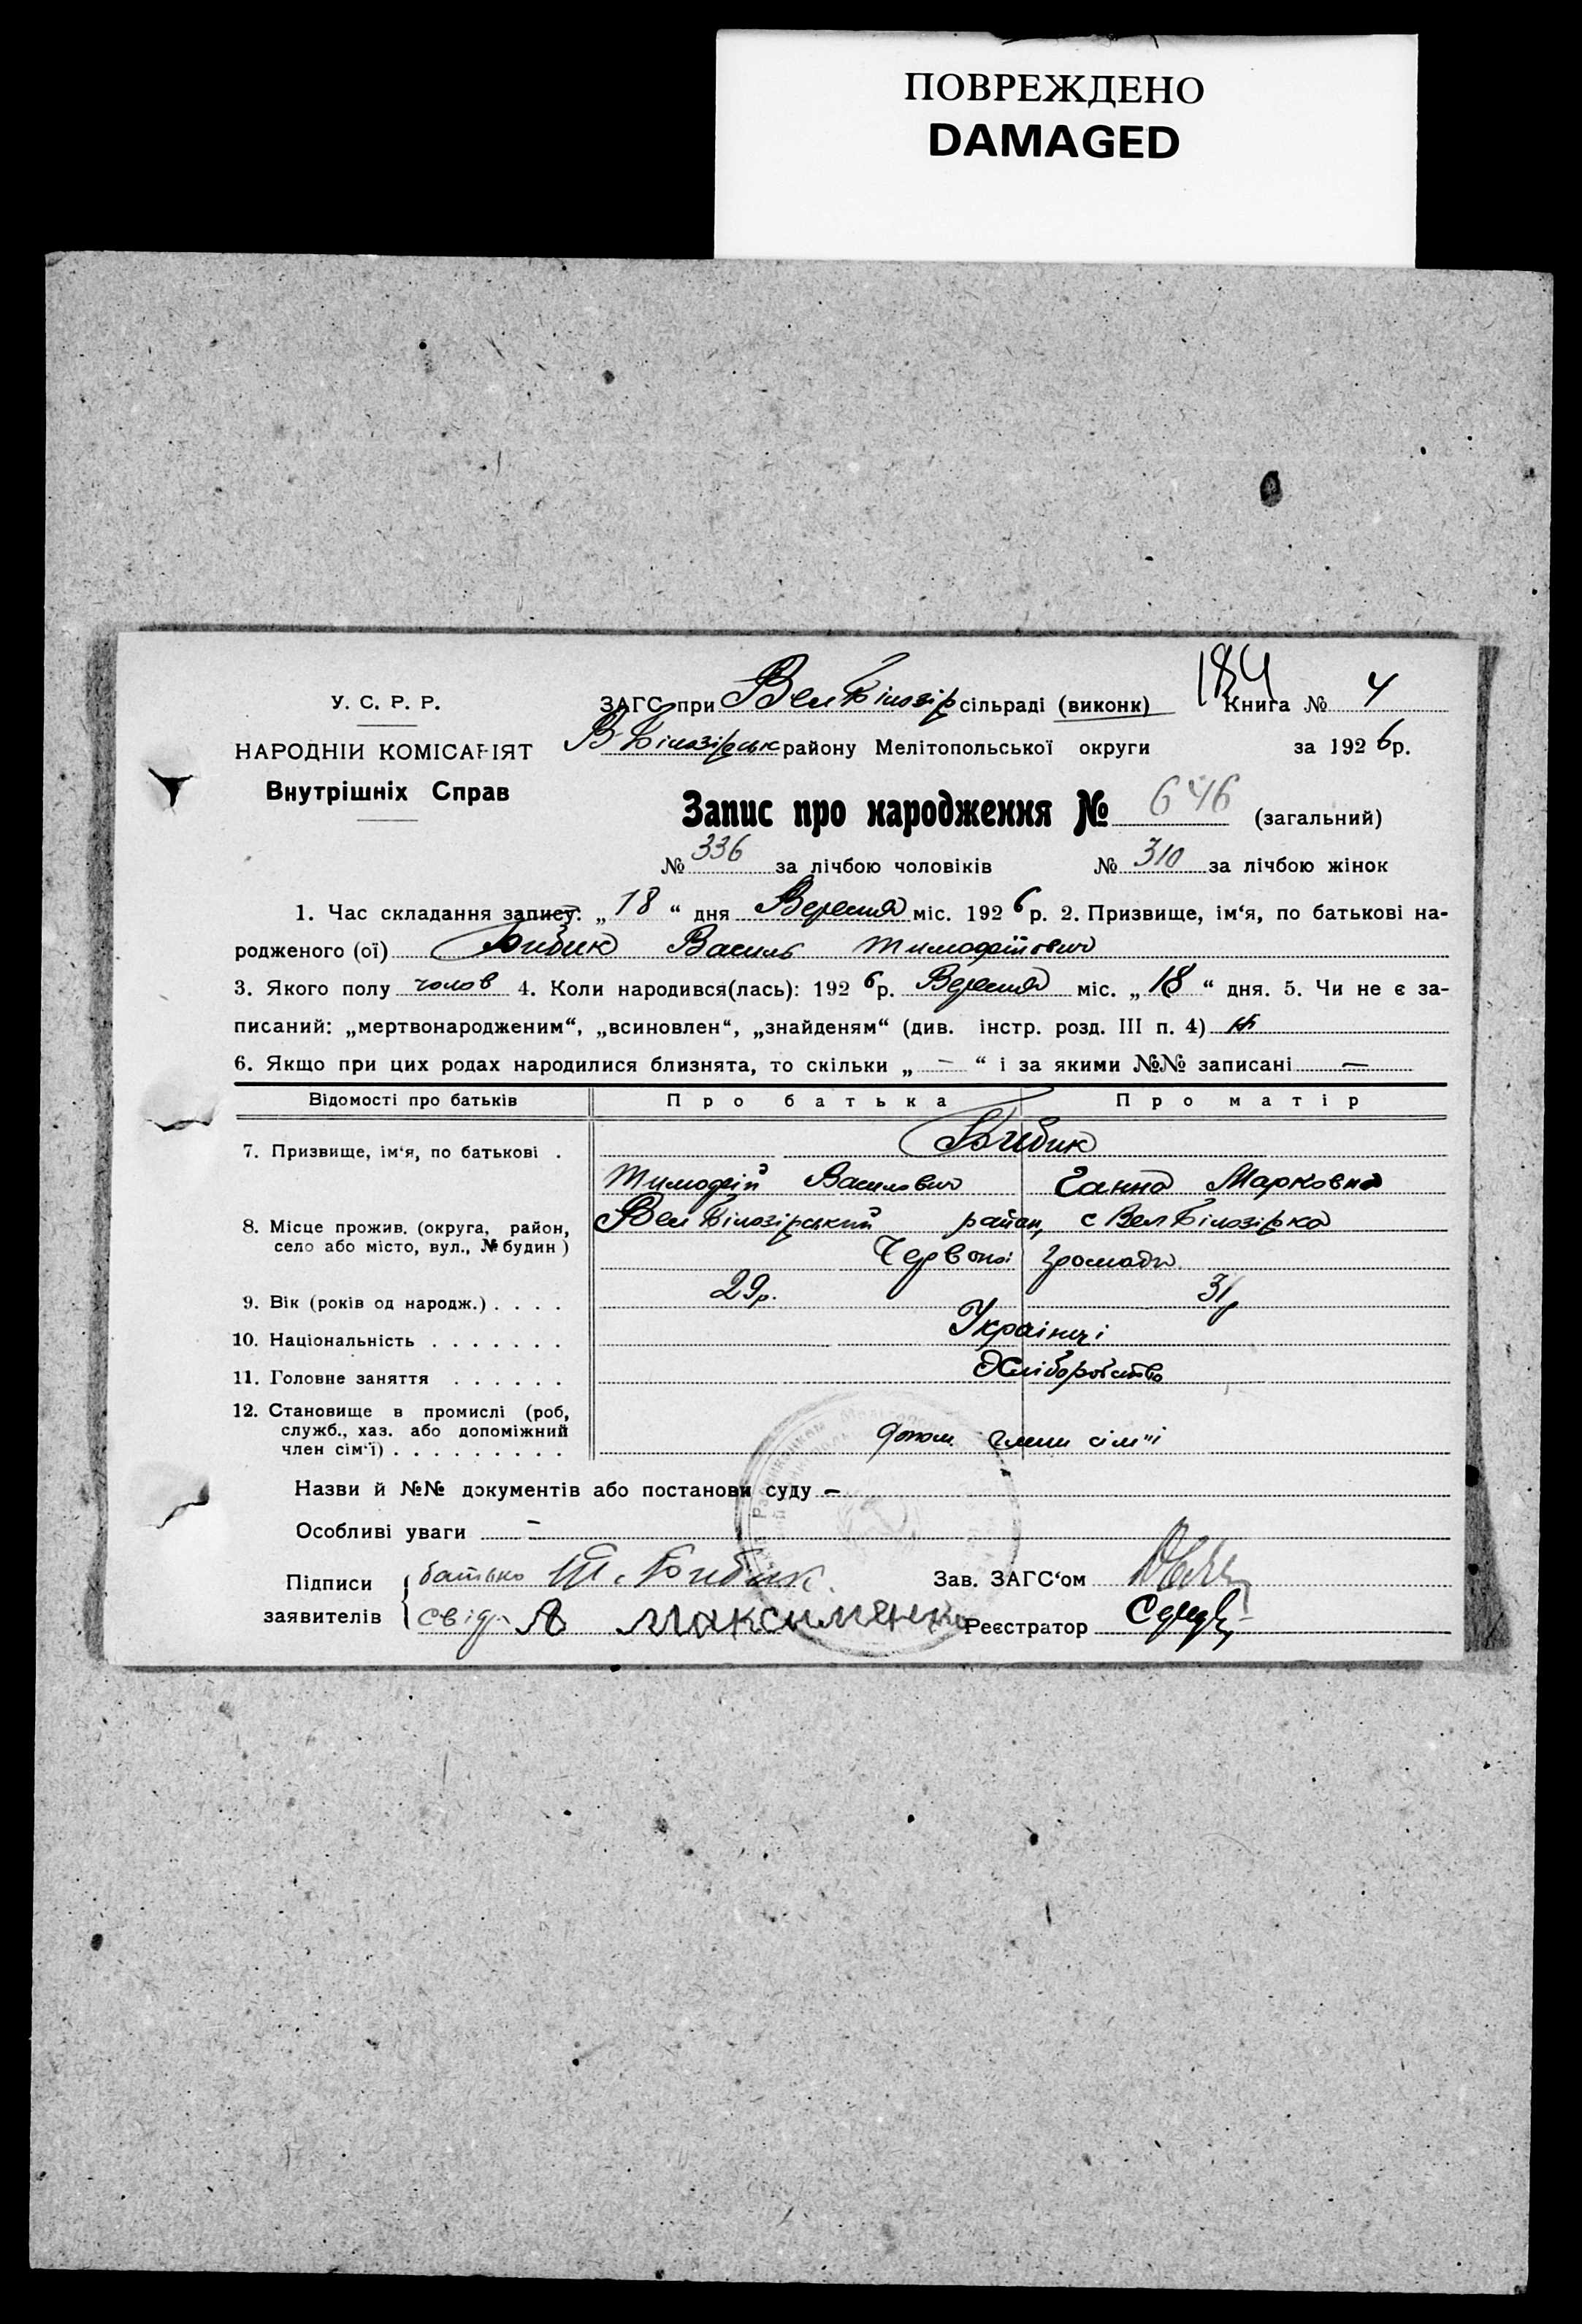 ПОВРЕЖДЕНО
DAMAGED
184
У. С. Р. Р.
ЗАГС при Вел Білозір сільраді (виконк) Книга № 4
НАРОДНІЙ КОМІСАРІЯТ В Білозірськ району Мелітопольської округи за 1926 р.
Внутрішніх Справ
Запис про народження № 646 (загальний)
№ 336 за лічбою чоловіків № 310 за лічбою жінок
1. Час складання запису: „18“ дня Вересня міс. 1926 р. 2. Призвище, ім‘я, по батькові на-
родженого (ої) Бибик Василь Тимофійович
3. Якого полу чолов 4. Коли народився(лась): 1926 р. Вересня міс. „18“ дня. 5. Чи не є за-
писаний: „мертвонародженим“, „всиновлен“, „знайденям“ (див. інстр. розд. III п. 4) ні
6. Якщо при цих родах народилися близнята, то скільки „ — “ і за якими №№ записані —
Відомості про батьків Про батька Про матір
7. Призвище, ім‘я, по батькові . Бибик
Тимофій Василович Ганна Марковна
8. Місце прожив. (округа, район, Вел Білозірський район, с Вел Білозірка
село або місто, вул., № будин) Червоної громади
9. Вік (років од народж.) . . . . 29р. 31р
10. Національність . . . . . . . Українці
11. Головне заняття . . . . . . Хліборобство
12. Становище в промислі (роб,
служб., хаз. або допоміжний допом. члени сім"ї
член сім‘ї) . . . . . . . . .
Назви й №№ документів або постанови суду —
Особливі уваги —
Підписи батько Т. Бибик. Зав. ЗАГС‘ом
заявителів свід. А Максименко Реєстратор